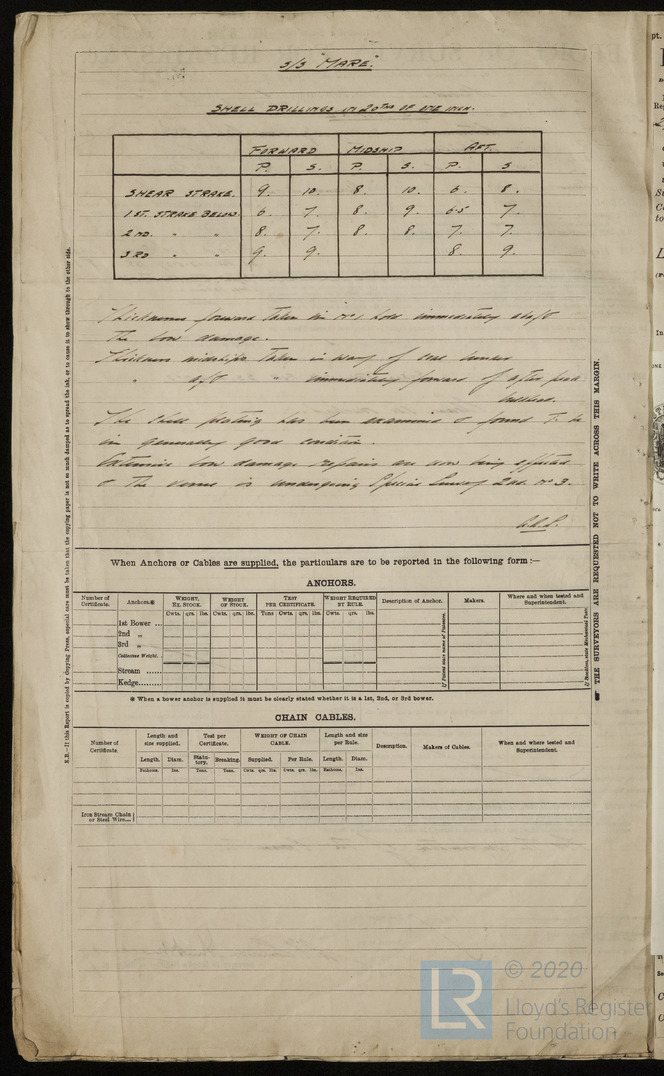 S/S "MARE".
SHELL DRILLINGS IN 20THS OF ONE INCH.
FORWARD MIDSHIP AFT.
P. S. P. S. P. S
SHEAR STRAKE. 9. 10. 8. 10. 6. 8.
1ST. STRAKE BELOW. 6. 7. 8. 9. 6.5 7.
2ND. " " 8. 7. 8. 8. 7. 7.
3RD " " 9. 9. 8. 9.
Thickness forward taken in No 1 hold immediately abaft
the bow damage.
Thickness midships taken in way of bunker
" aft " immediately forward of after peak
bulkhead.
The shell plating has been examined & found to be
in generally good condition.
Extensive bow damage repairs are now being effected
& the vessel is undergoing Special Survey 2nd. No 3.
When Anchors or Cables are supplied, the particulars are to be reported in the following form:—
ANCHORS.
Number of Certificate. Anchors.* WEIGHT, EX. STOCK. WEIGHT OF STOCK. TEST PER CERTIFICATE. WEIGHT REQUIRED BY RULE. Description of Anchor. Makers. Where and when tested and Superintendent.
Cwts. qrs. lbs. Cwts. qrs. lbs. Tons Cwts. qrs. lbs. Cwts. qrs. lbs.
1st Bower ...
2nd "
3rd "
Collective Weight.
Stream ......
Kedge.........
If Patent state name of Patentee.
If Stockless, state Mechanical Tests.
* When a bower anchor is supplied it must be clearly stated whether it is a 1st, 2nd, or 3rd bower.
CHAIN CABLES.
Number of Certificate. Length and size supplied. Test per Certificate. WEIGHT OF CHAIN CABLE. Length and size per Rule. Description. Makers of Cables. When and where tested and Superintendent.
Length. Diam. Statutory. Breaking. Supplied. Per Rule. Length. Diam.
Fathoms. Ins. Tons. Tons. Cwts. qrs. lbs. Cwts. qrs. lbs. Fathoms. Ins.
Iron Stream Chain or Steel Wire...
N.B.—If this Report is copied by Copying Press, especial care must be taken that the copying paper is not so much damped as to spread the ink, or to cause it to show through to the other side.
THE SURVEYORS ARE REQUESTED NOT TO WRITE ACROSS THIS MARGIN.
LR
© 2020
Lloyd's Register
Foundation